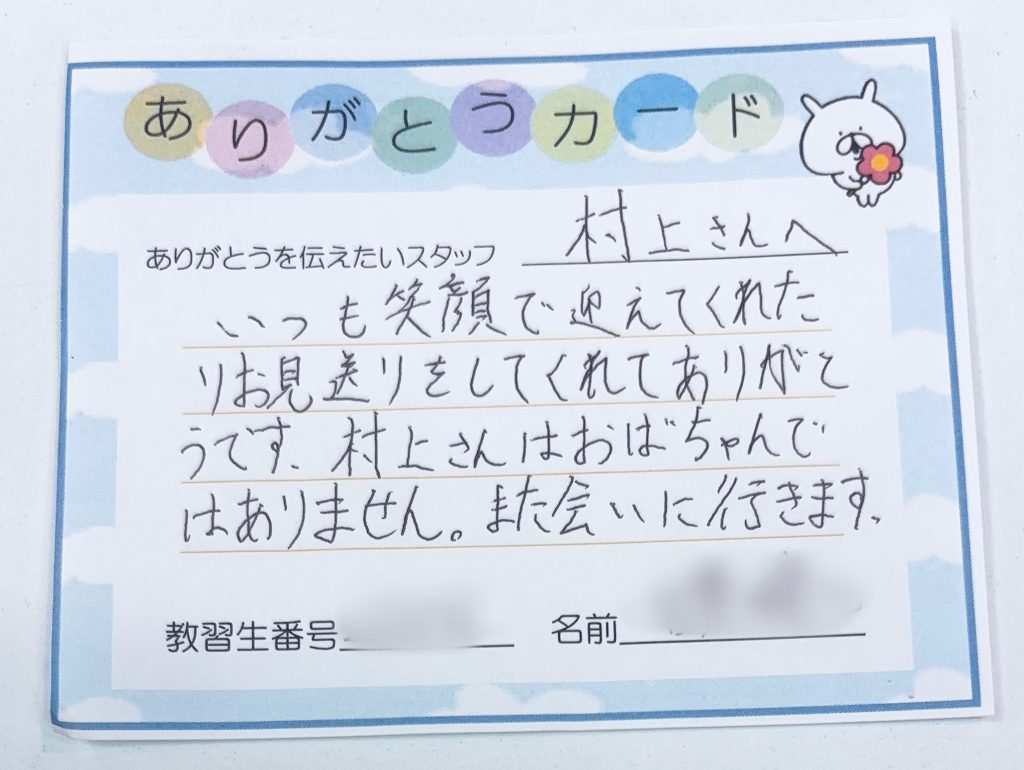 ありがとうカード
ありがとうを伝えたいスタッフ 村上さんへ
いつも笑顔で迎えてくれた
りお見送りをしてくれてありがと
うです。村上さんはおばちゃんで
はありません。また会いに行きます。
教習生番号 名前